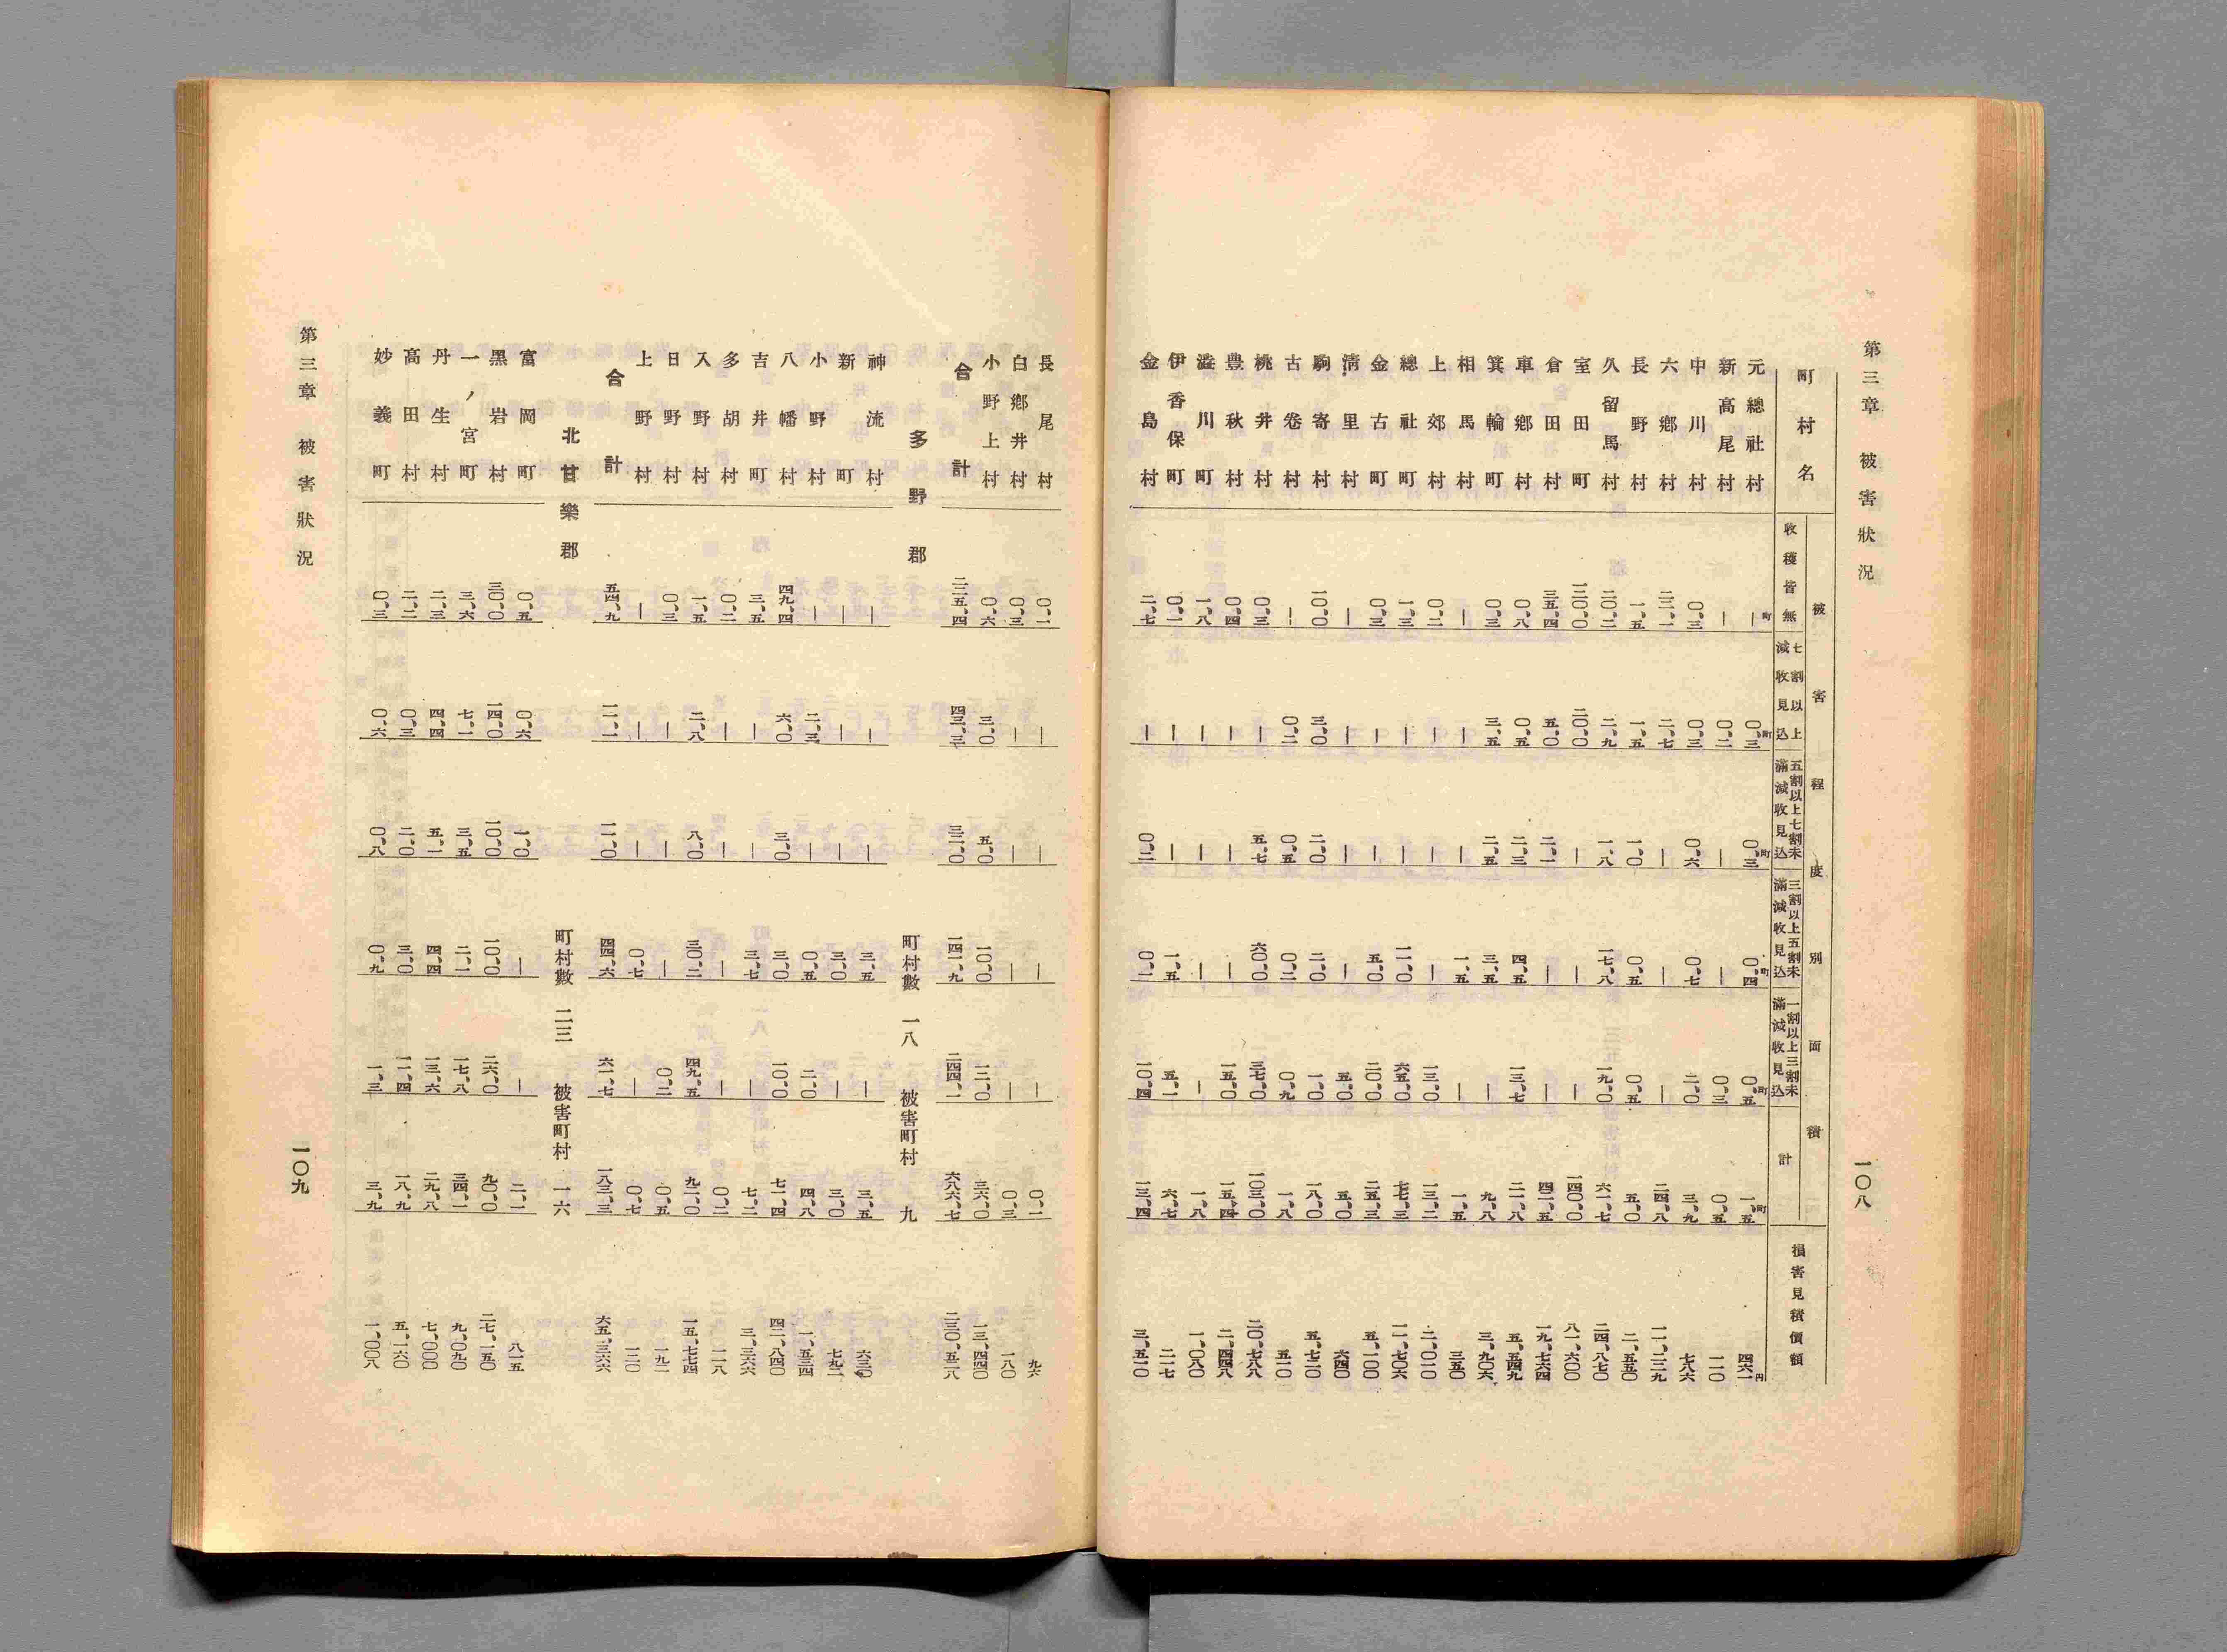 第三章　被害狀況　一〇八
町村名　被害程度別面積　損害見積價額
收穫皆無　七割以上減收見込　五割以上七割未滿減收見込　三割以上五割未滿減收見込　一割以上三割未滿減收見込　計
元總社村　｜町　〇、三町　〇、三町　〇、四町　〇、五町　一、五町　四六一円
新高尾村　｜　〇、二　｜　｜　〇、三　〇、五　一一〇
中川村　〇、三　〇、三　〇、六　〇、七　二、〇　三、九　七八六
六鄉村　二二、一　二、七　｜　｜　｜　二四、八　一一、二二九
長野村　一、五　一、五　一、〇　〇、五　〇、五　五、〇　二、五五〇
久留馬村　二〇、二　二、九　一、八　一七、八　一九、〇　六一、七　二四、八七〇
室田町　一二〇、〇　二〇、〇　｜　｜　｜　一四〇、〇　八一、六〇〇
倉田村　三五、四　五、〇　二、一　｜　｜　四二、五　一九、七六四
車鄉村　〇、八　〇、五　二、三　四、五　一三、七　二一、八　五、五四九
箕輪町　〇、三　三、五　二、五　三、五　｜　九、八　三、九〇六
相馬村　｜　｜　｜　一、五　｜　一、五　三五〇
上郊村　〇、二　｜　｜　｜　一三、〇　一三、二　二、〇一〇
總社町　一、三　｜　｜　一一、〇　六五、〇　七七、三　一一、七〇六
金古町　〇、三　｜　｜　五、〇　二〇、〇　二五、三　五、一〇〇
淸里村　｜　｜　｜　｜　五、〇　五、〇　六四〇
駒寄村　一〇、〇　三、〇　二、〇　二、〇　一、〇　一八、〇　五、七二〇
古卷村　｜　〇、二　〇、五　〇、二　〇、九　一、八　五一〇
桃井村　〇、三　｜　五、七　六〇、〇　三七、〇　一〇三、〇　二〇、七八八
豊秋村　〇、四　｜　｜　｜　一五、〇　一五、四　二、四四八
澁川町　一、八　｜　｜　｜　｜　一、八　一、〇八〇
伊香保町　〇、一　｜　｜　一、五　五、一　六、七　二一七
金島村　二、七　｜　〇、二　〇、一　一〇、四　一三、四　三、五一〇
長尾村　〇、一　｜　｜　｜　｜　〇、一　九六
白鄉井村　〇、三　｜　｜　｜　｜　〇、三　一八〇
小野上村　〇、六　三、〇　五、〇　一〇、〇　一二、〇　三六、〇　一三、四四〇
合計　二二五、四　四三、三　三二、〇　一四一、九　二四四、一　六八六、七　二三〇、五二八
多野郡　町村數　一八　被害町村　九
神流村　｜　｜　｜　三、五　｜　三、五　六三〇
新町　｜　｜　｜　三、〇　｜　三、〇　七九二
小野村　｜　二、三　｜　〇、五　二、〇　四、八　一、五三四
八幡村　四九、四　六、〇　三、〇　三、〇　一〇、〇　七一、四　四二、八四〇
吉井町　三、五　｜　｜　三、七　｜　七、二　三、三六六
多胡村　〇、二　｜　｜　｜　｜　〇、二　一一八
入野村　一、五　二、八　八、〇　三〇、二　四九、五　九二、〇　一五、七七四
日野村　〇、三　｜　｜　｜　〇、二　〇、五　一九二
上野村　｜　｜　｜　〇、七　｜　〇、七　一二〇
合計　五四、九　一一、一　一一、〇　四四、六　六一、七　一八三、三　六五、三六六
北甘樂郡　町村數　二三　被害町村　一六
富岡町　〇、五　〇、六　一、〇　｜　｜　二、一　八一五
黑岩村　三〇、〇　一四、〇　一〇、〇　一〇、〇　二六、〇　九〇、〇　二七、一五〇
一ノ宮町　三、六　七、一　三、五　二、一　一七、八　三四、一　九、〇九〇
丹生村　二、三　四、四　五、一　四、四　一三、六　二九、八　七、〇〇〇
高田村　二、二　〇、三　二、〇　三、〇　一一、四　一八、九　五、一六〇
妙義町　〇、三　〇、六　〇、八　〇、九　一、三　三、九　一、〇〇八
第三章　被害狀況　一〇九